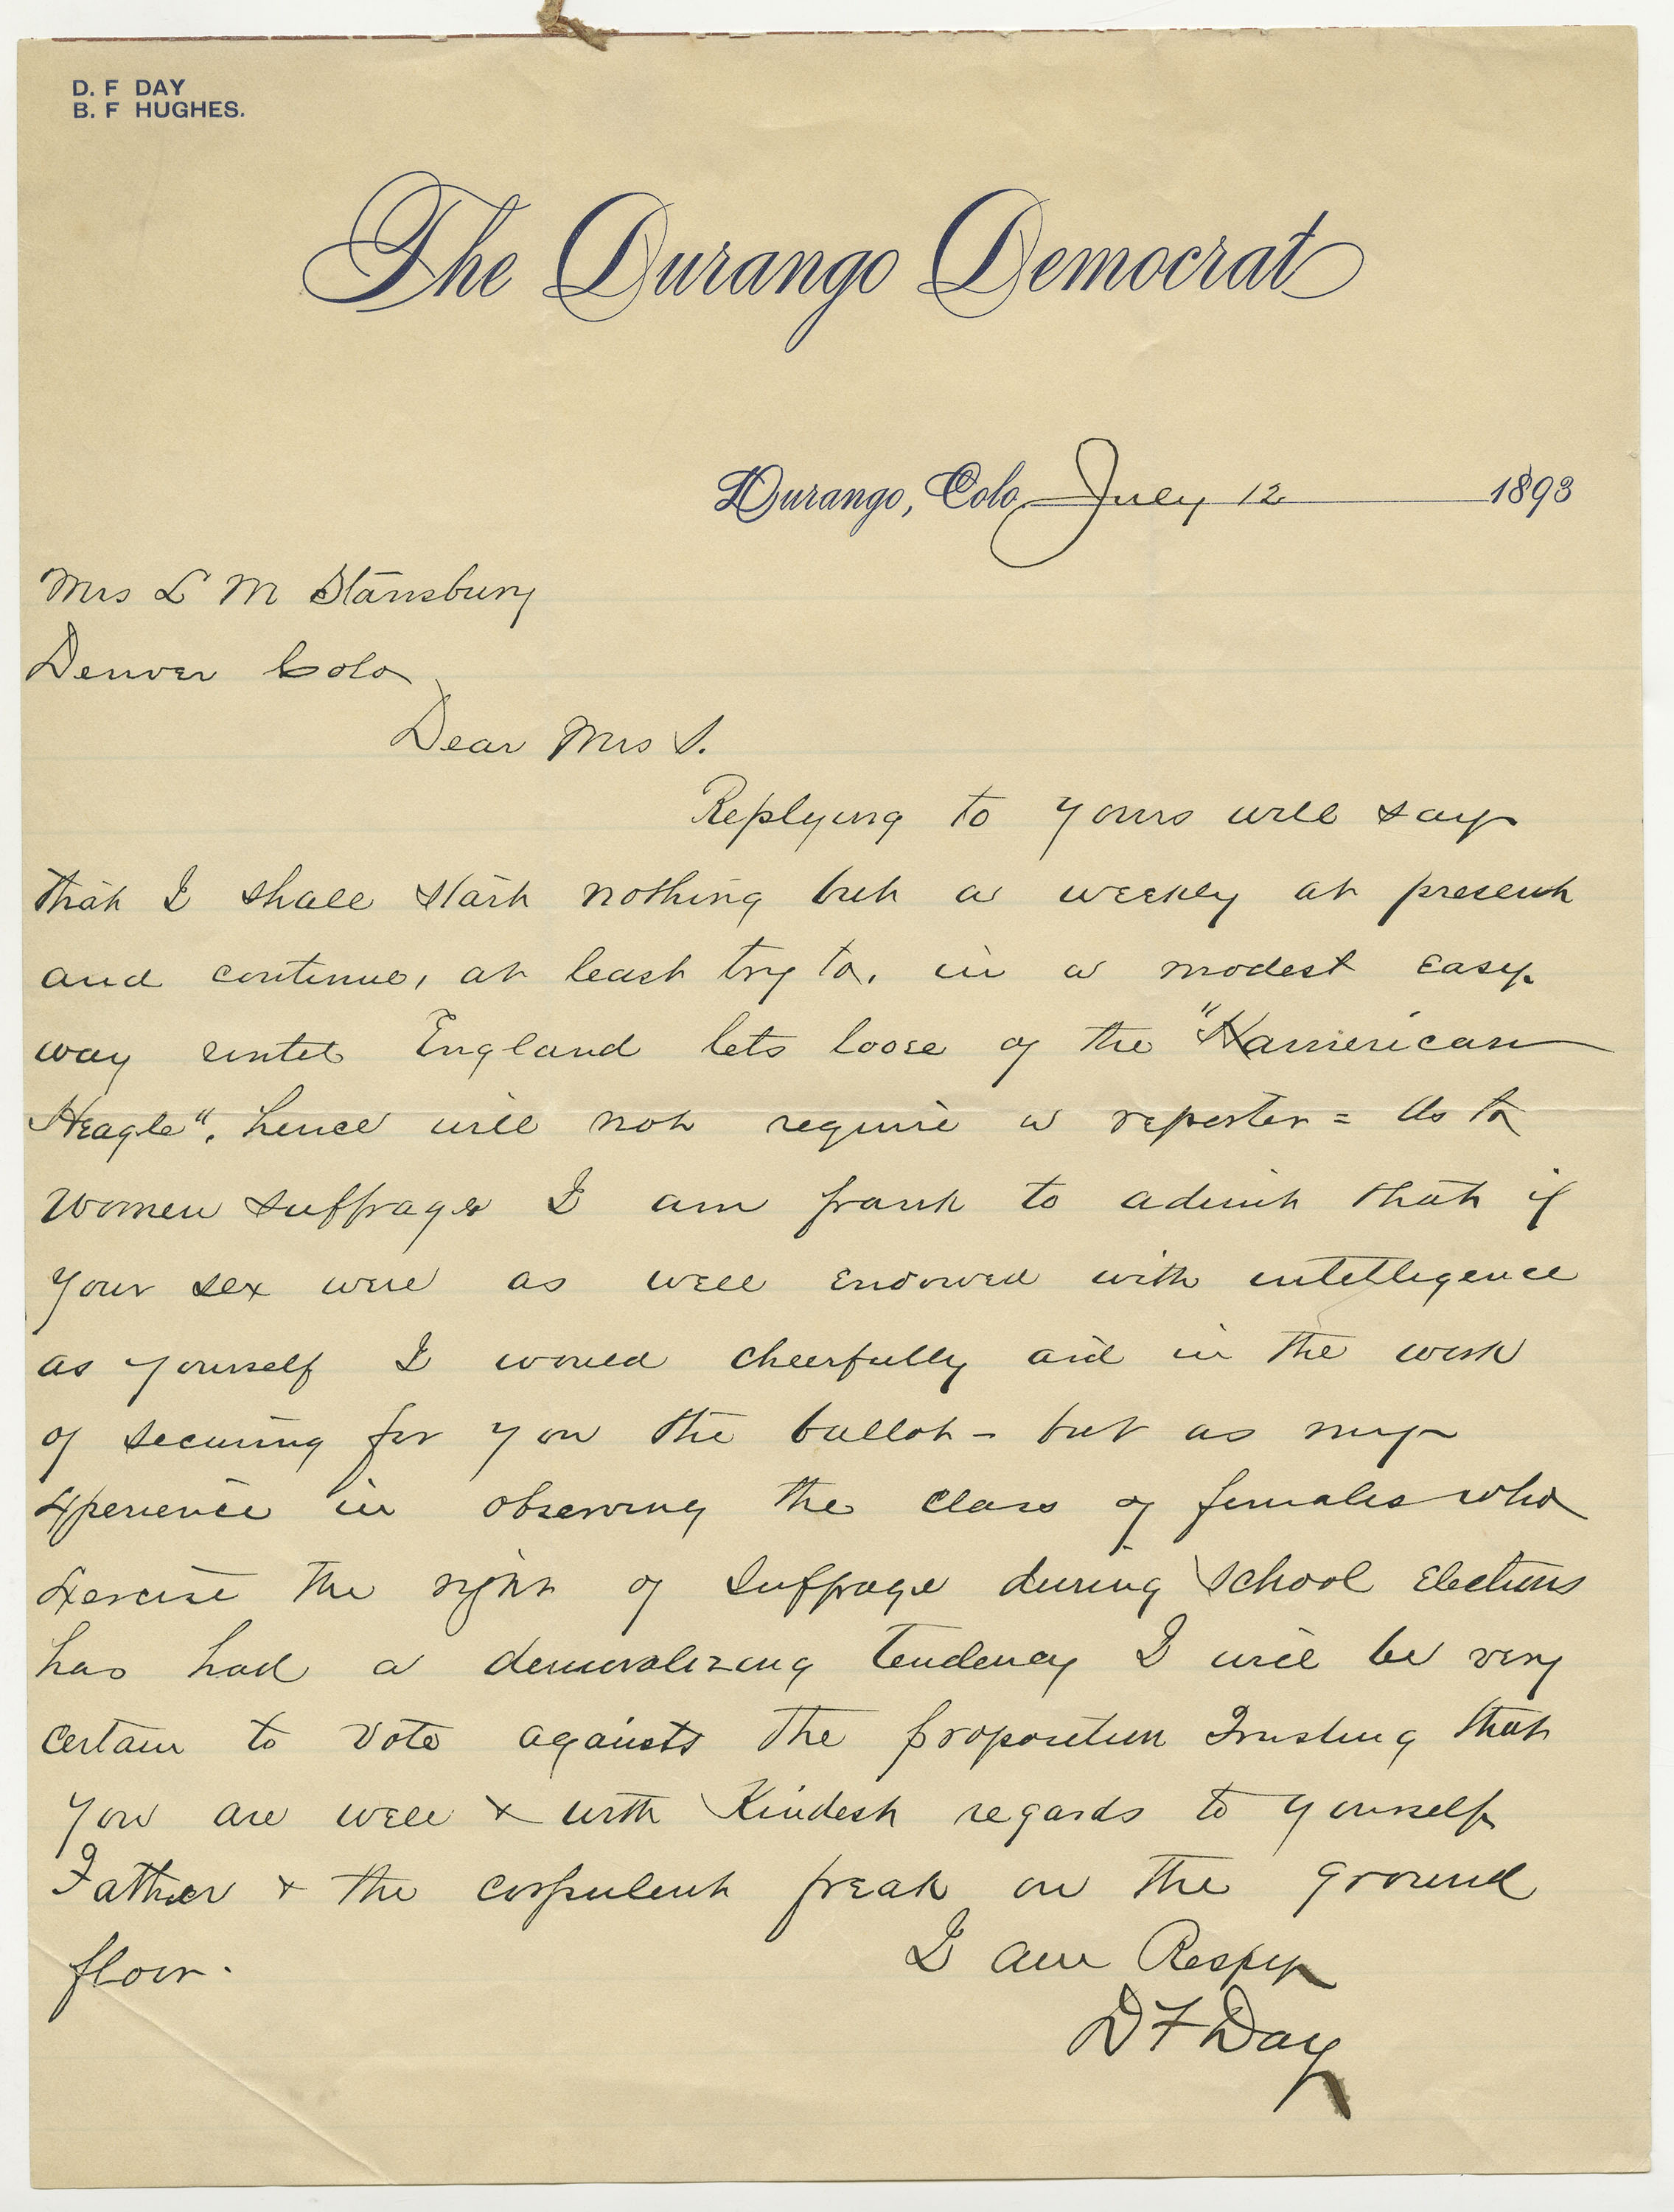 D. F DAY
B. F HUGHES.
The Durango Democrat
Durango, Colo July 12 1893
Mrs L M Stansbury
Denver Colo
Dear Mrs S.
Replying to yours will say
that I shall start nothing but a weekly at present
and continue, at least try to, in a modest easy
way until England lets loose of the "Hamerican
Heagle", hence will not require a reporter = As to
Women suffrage I am frank to admit that if
your sex were as well endowed with intelligence
as yourself I would cheerfully aid in the work
of securing for you the ballot - but as my
experience in observing the class of females who
exercise the right of suffrage during school elections
has had a demoralizing tendency I will be very
certain to vote against the proposition Trusting that
you are well & with Kindest regards to yourself
Father & the corpulent freak on the ground
floor. I am Respy
D F Day